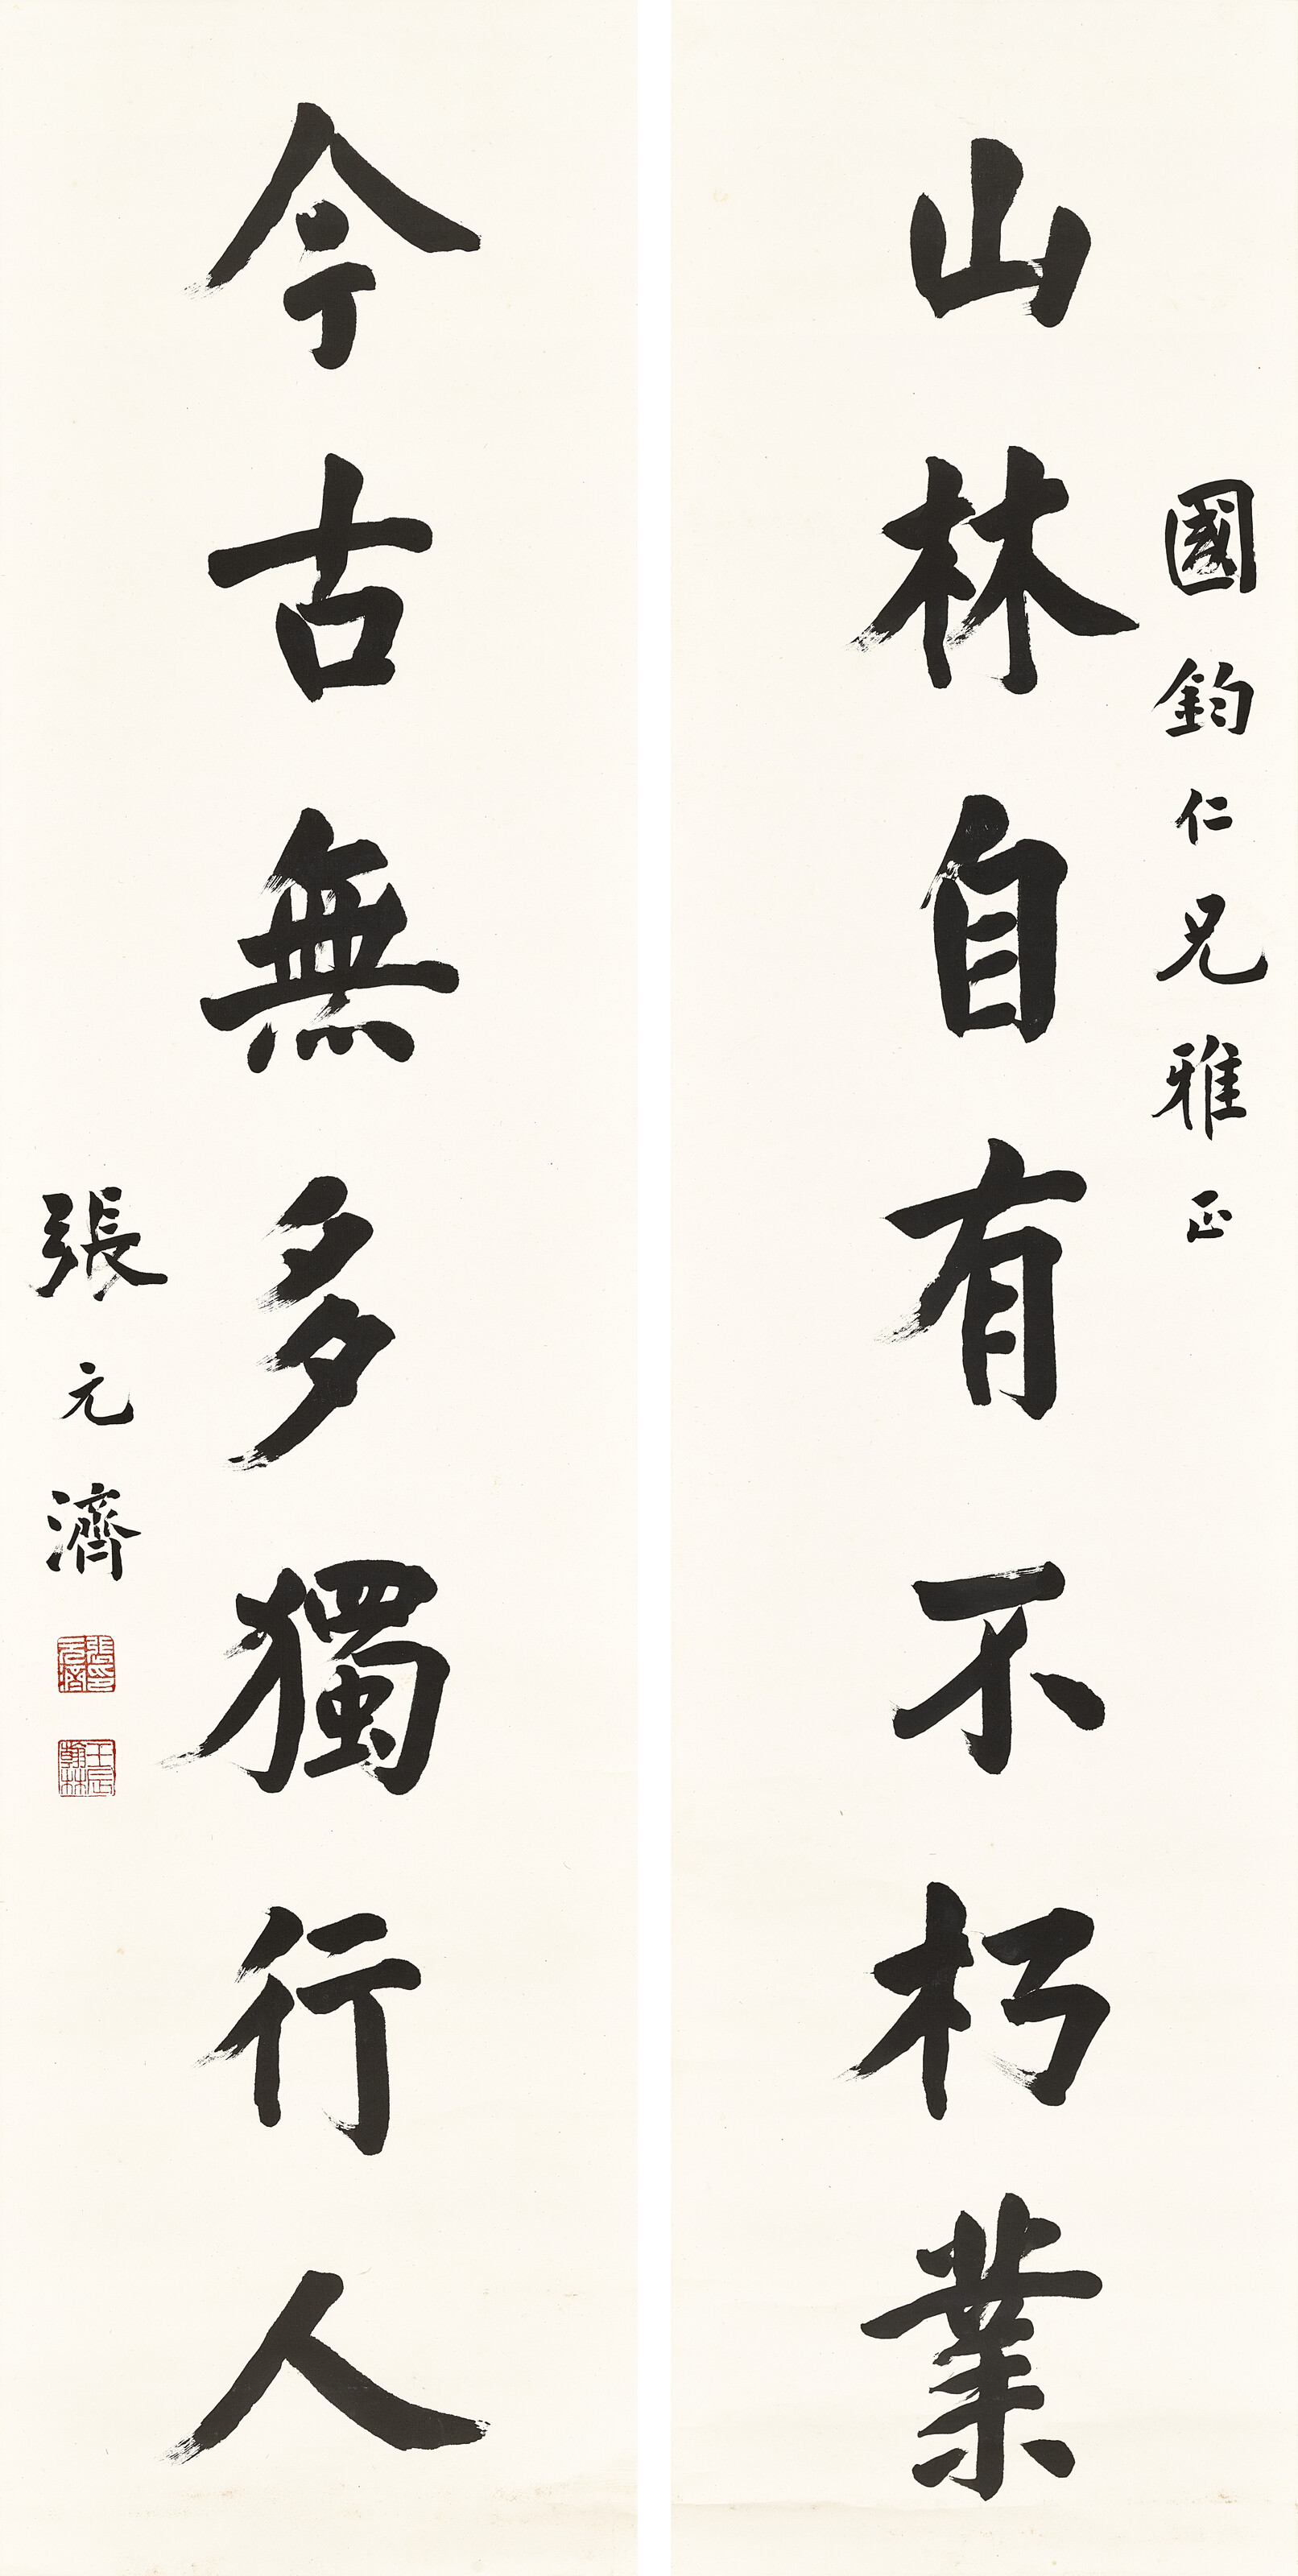 國鈞仁兄雅正
山林自有不朽業
今古無多獨行人
張元濟
張元濟印
壬辰翰林